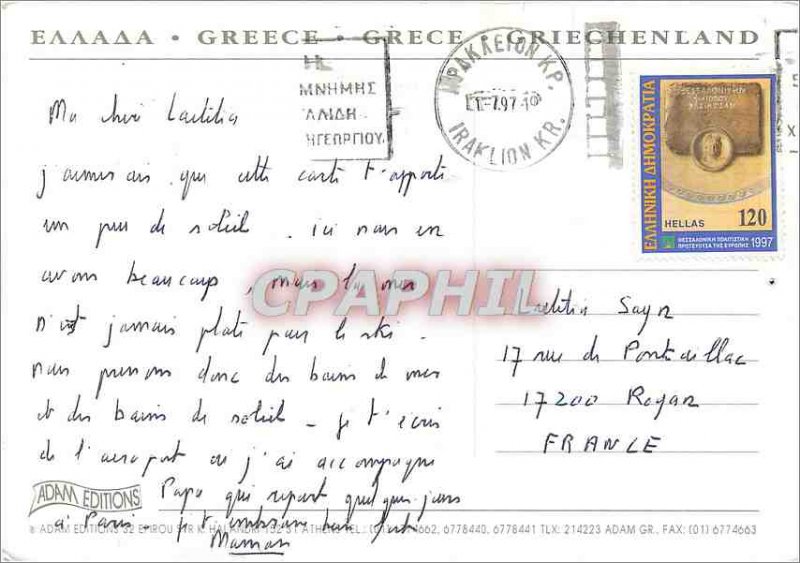 ΕΛΛΑΔΑ • GREECE • GRECE • GRIECHENLAND
ΜΝΗΜΗΣ
ΗΓΕΩΡΓΙΟΥ
ΗΡΑΚΛΕΙΟΝ ΚΡ.
-7.97-
IRAKLION KR.
ΕΛΛΗΝΙΚΗ ΔΗΜΟΚΡΑΤΙΑ
HELLAS 120
ΘΕΣΣΑΛΟΝΙΚΗ ΠΟΛΙΤΙΣΤΙΚΗ
ΠΡΩΤΕΥΟΥΣΑ ΤΗΣ ΕΥΡΩΠΗΣ 1997
Ma Laetitia
j'aimerais que cette carte t'apporte
un peu de soleil. ici nous en
avons beaucoup, mais la mer
n'est jamais plate pour le ski.
nous prenons donc des bains de mer
et des bains de soleil - je t'écris
de l'aeroport ou j'ai accompagné
Papa qui repart quelques jours
à Paris - je t'embrasse bien fort
Maman
CPAPHIL.com
Laetitia Sayn
17 rue de Pontaillac
17200 Royan
FRANCE
ADAM EDITIONS
ADAM EDITIONS 32 EPIROU STR K. HALANDRI 152 31 ATHENS TEL.: 6778440, 6778441 TLX: 214223 ADAM GR., FAX: (01) 6774663